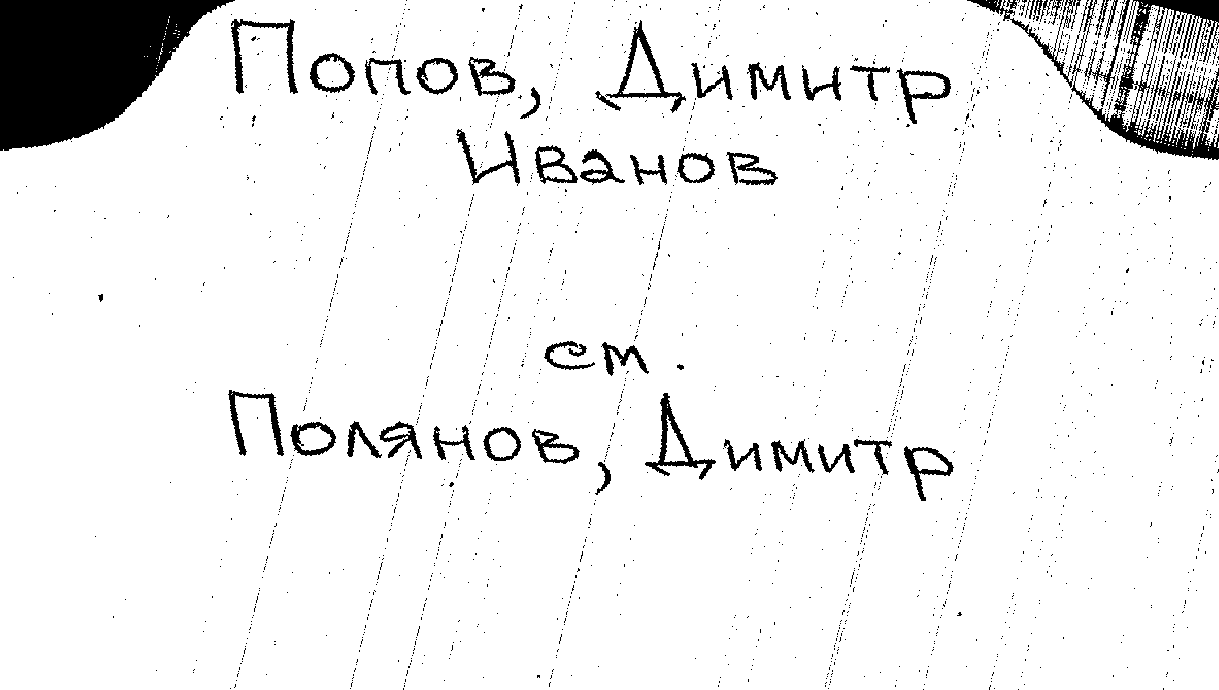 Попов, Димитр
Иванов
ст.
Полянов, Димитр